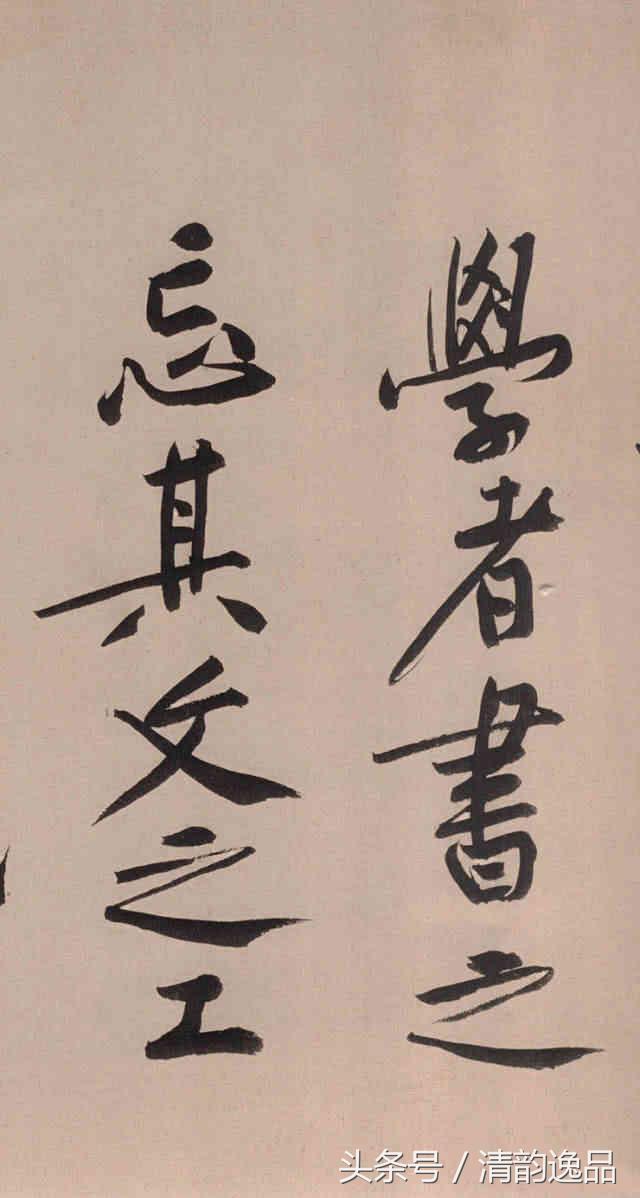 學者書之
忘其文之工
头条号 / 清韵逸品